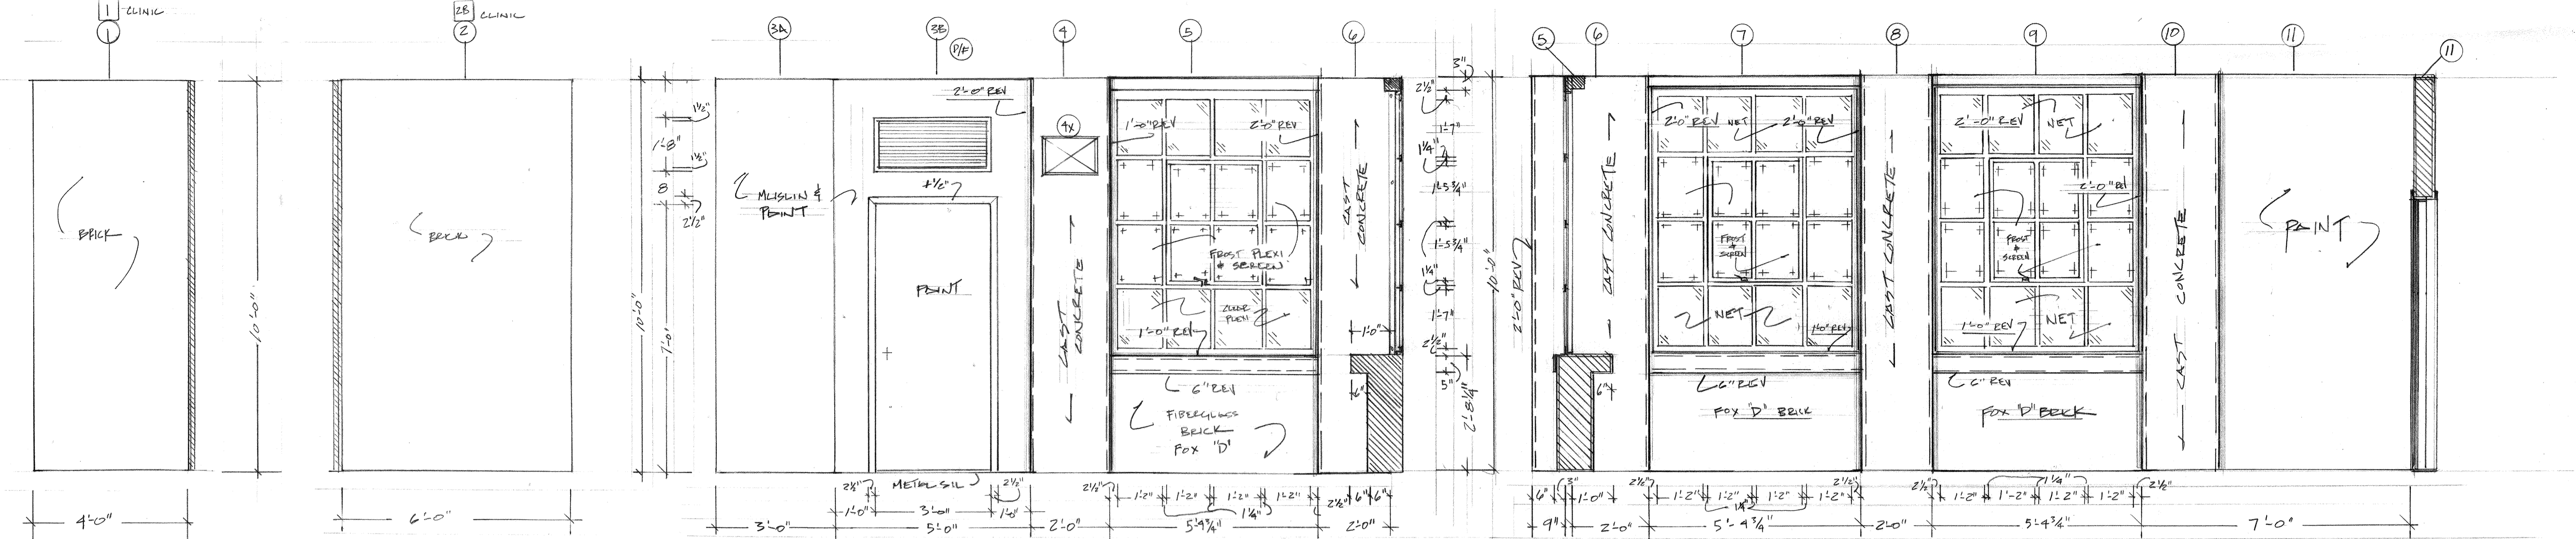 1 CLINIC
1
BRICK
4'-0"
10'-0"
2B CLINIC
2
BRICK
6'-0"
10'-0"
1 1/2"
1'-8"
1 1/2"
8
2 1/2"
7'-0"
3A
MUSLIN &
PAINT
3'-0"
3B
P/F
2'-0" REV
4 1/2"
PAINT
METAL SIL
2 1/2"
2 1/2"
1'-0"
3'-0"
1'-0"
5'-0"
4
4X
CAST
CONCRETE
2'-0"
5
1'-0" REV
2'-0" REV
FROST PLEXI
& SCREEN
CLEAR
PLEXI
1'-0" REV
6" REV
FIBERGLASS
BRICK
FOX "D"
2 1/2"
1'-2"
1'-2"
1'-2"
1'-2"
1 1/4"
5'-4 3/4"
6
CAST
CONCRETE
1'-0"
6"
2 1/2"
6"
6"
2'-0"
3"
2 1/2"
1'-7"
1 1/4"
1'-5 3/4"
1'-5 3/4"
1 1/4"
1'-7"
2 1/2"
5"
2'-8 1/4"
10'-0"
5
2'-0" REV
6"
3"
9"
6
CAST CONCRETE
6"
1'-0"
2'-0"
7
2'-0" REV
NET
2'-0" REV
FROST
&
SCREEN
NET
1'-0" REV
6" REV
FOX "D" BRICK
2 1/2"
1'-2"
1'-2"
1'-2"
1'-2"
2 1/2"
1 1/4"
5'-4 3/4"
8
CAST CONCRETE
2'-0"
9
2'-0" REV
NET
2'-0" REV
FROST
&
SCREEN
1'-0" REV
NET
6" REV
FOX "D" BRICK
2 1/2"
1'-2"
1'-2"
1'-2"
1'-2"
1 1/4"
2 1/2"
5'-4 3/4"
10
CAST CONCRETE
11
PAINT
7'-0"
11